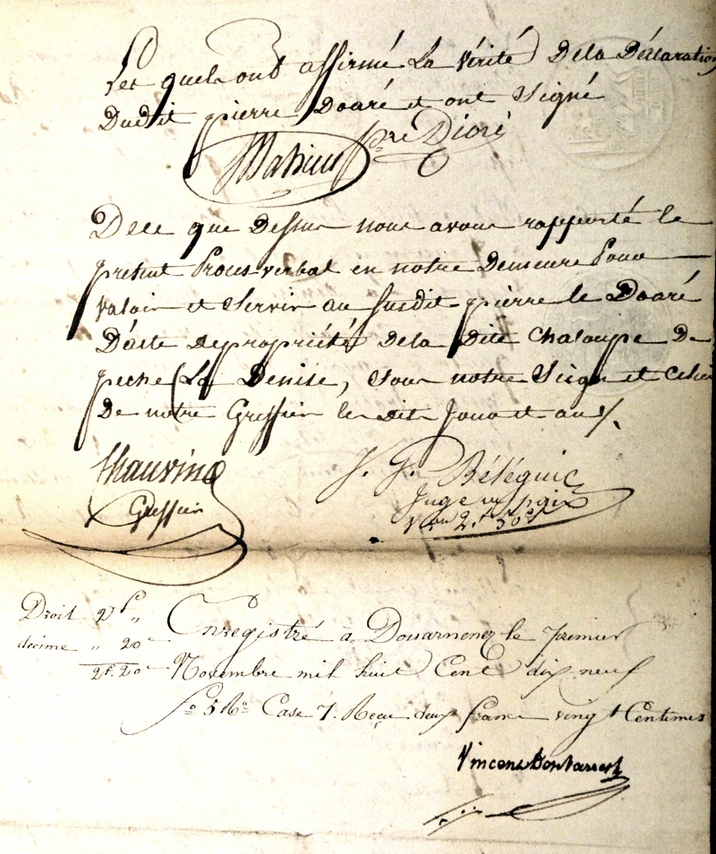 Les quels ont affirmé La Vérité De la Déclaration
Dudit pierre Doaré et ont Signé
Mahieu pre Dioré
De ce que Dessus nous avons rapporté le
présent Procès verbal en notre Demeure Pour
Valoir et Servir au Susdit pierre le Doaré
D'acte de propriété De la Dite Chaloupe De
peche La Denise, Sous notre Seign et Celui
De notre Greffier les dits Jour et an ./.
Chauvin
Greffier
J. G. Béléguic
Juge de paix
Von 2f 50c
Droit 2f "
décime " 20c
2f. 20c
Enregistré à Douarnenez le premier
Novembre mil huit Cent dix neuf
fo 5 Ro Case 7. Reçu deux francs vingt Centimes